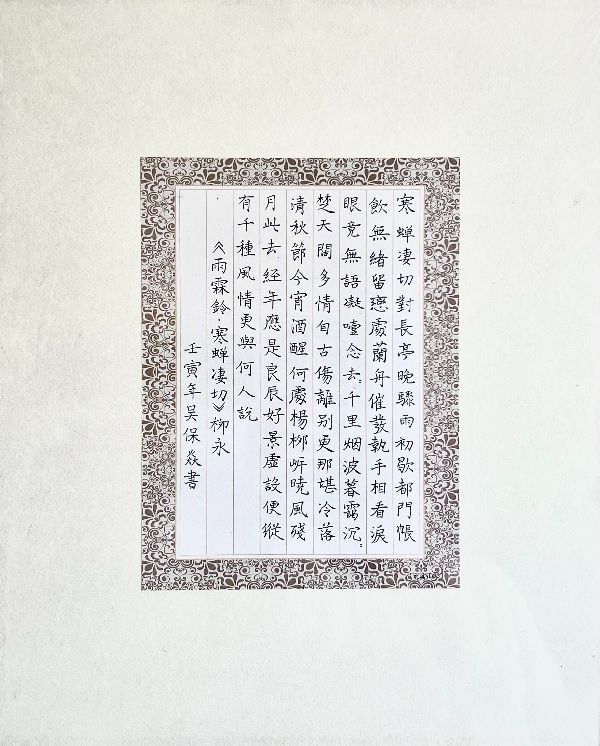 寒蝉凄切對長亭晚驟雨初歇都門帳
飲無緒留戀處蘭舟催發執手相看淚
眼竟無語凝噎念去:千里烟波暮靄沉:
楚天闊多情自古傷離别更那堪冷落
清秋節今宵酒醒何處楊柳岍曉風殘
月此去經年應是良辰好景虛設便縱
有千種風情更與何人說
《雨霖鈴·寒蝉凄切》柳永
壬寅年吴保焱書